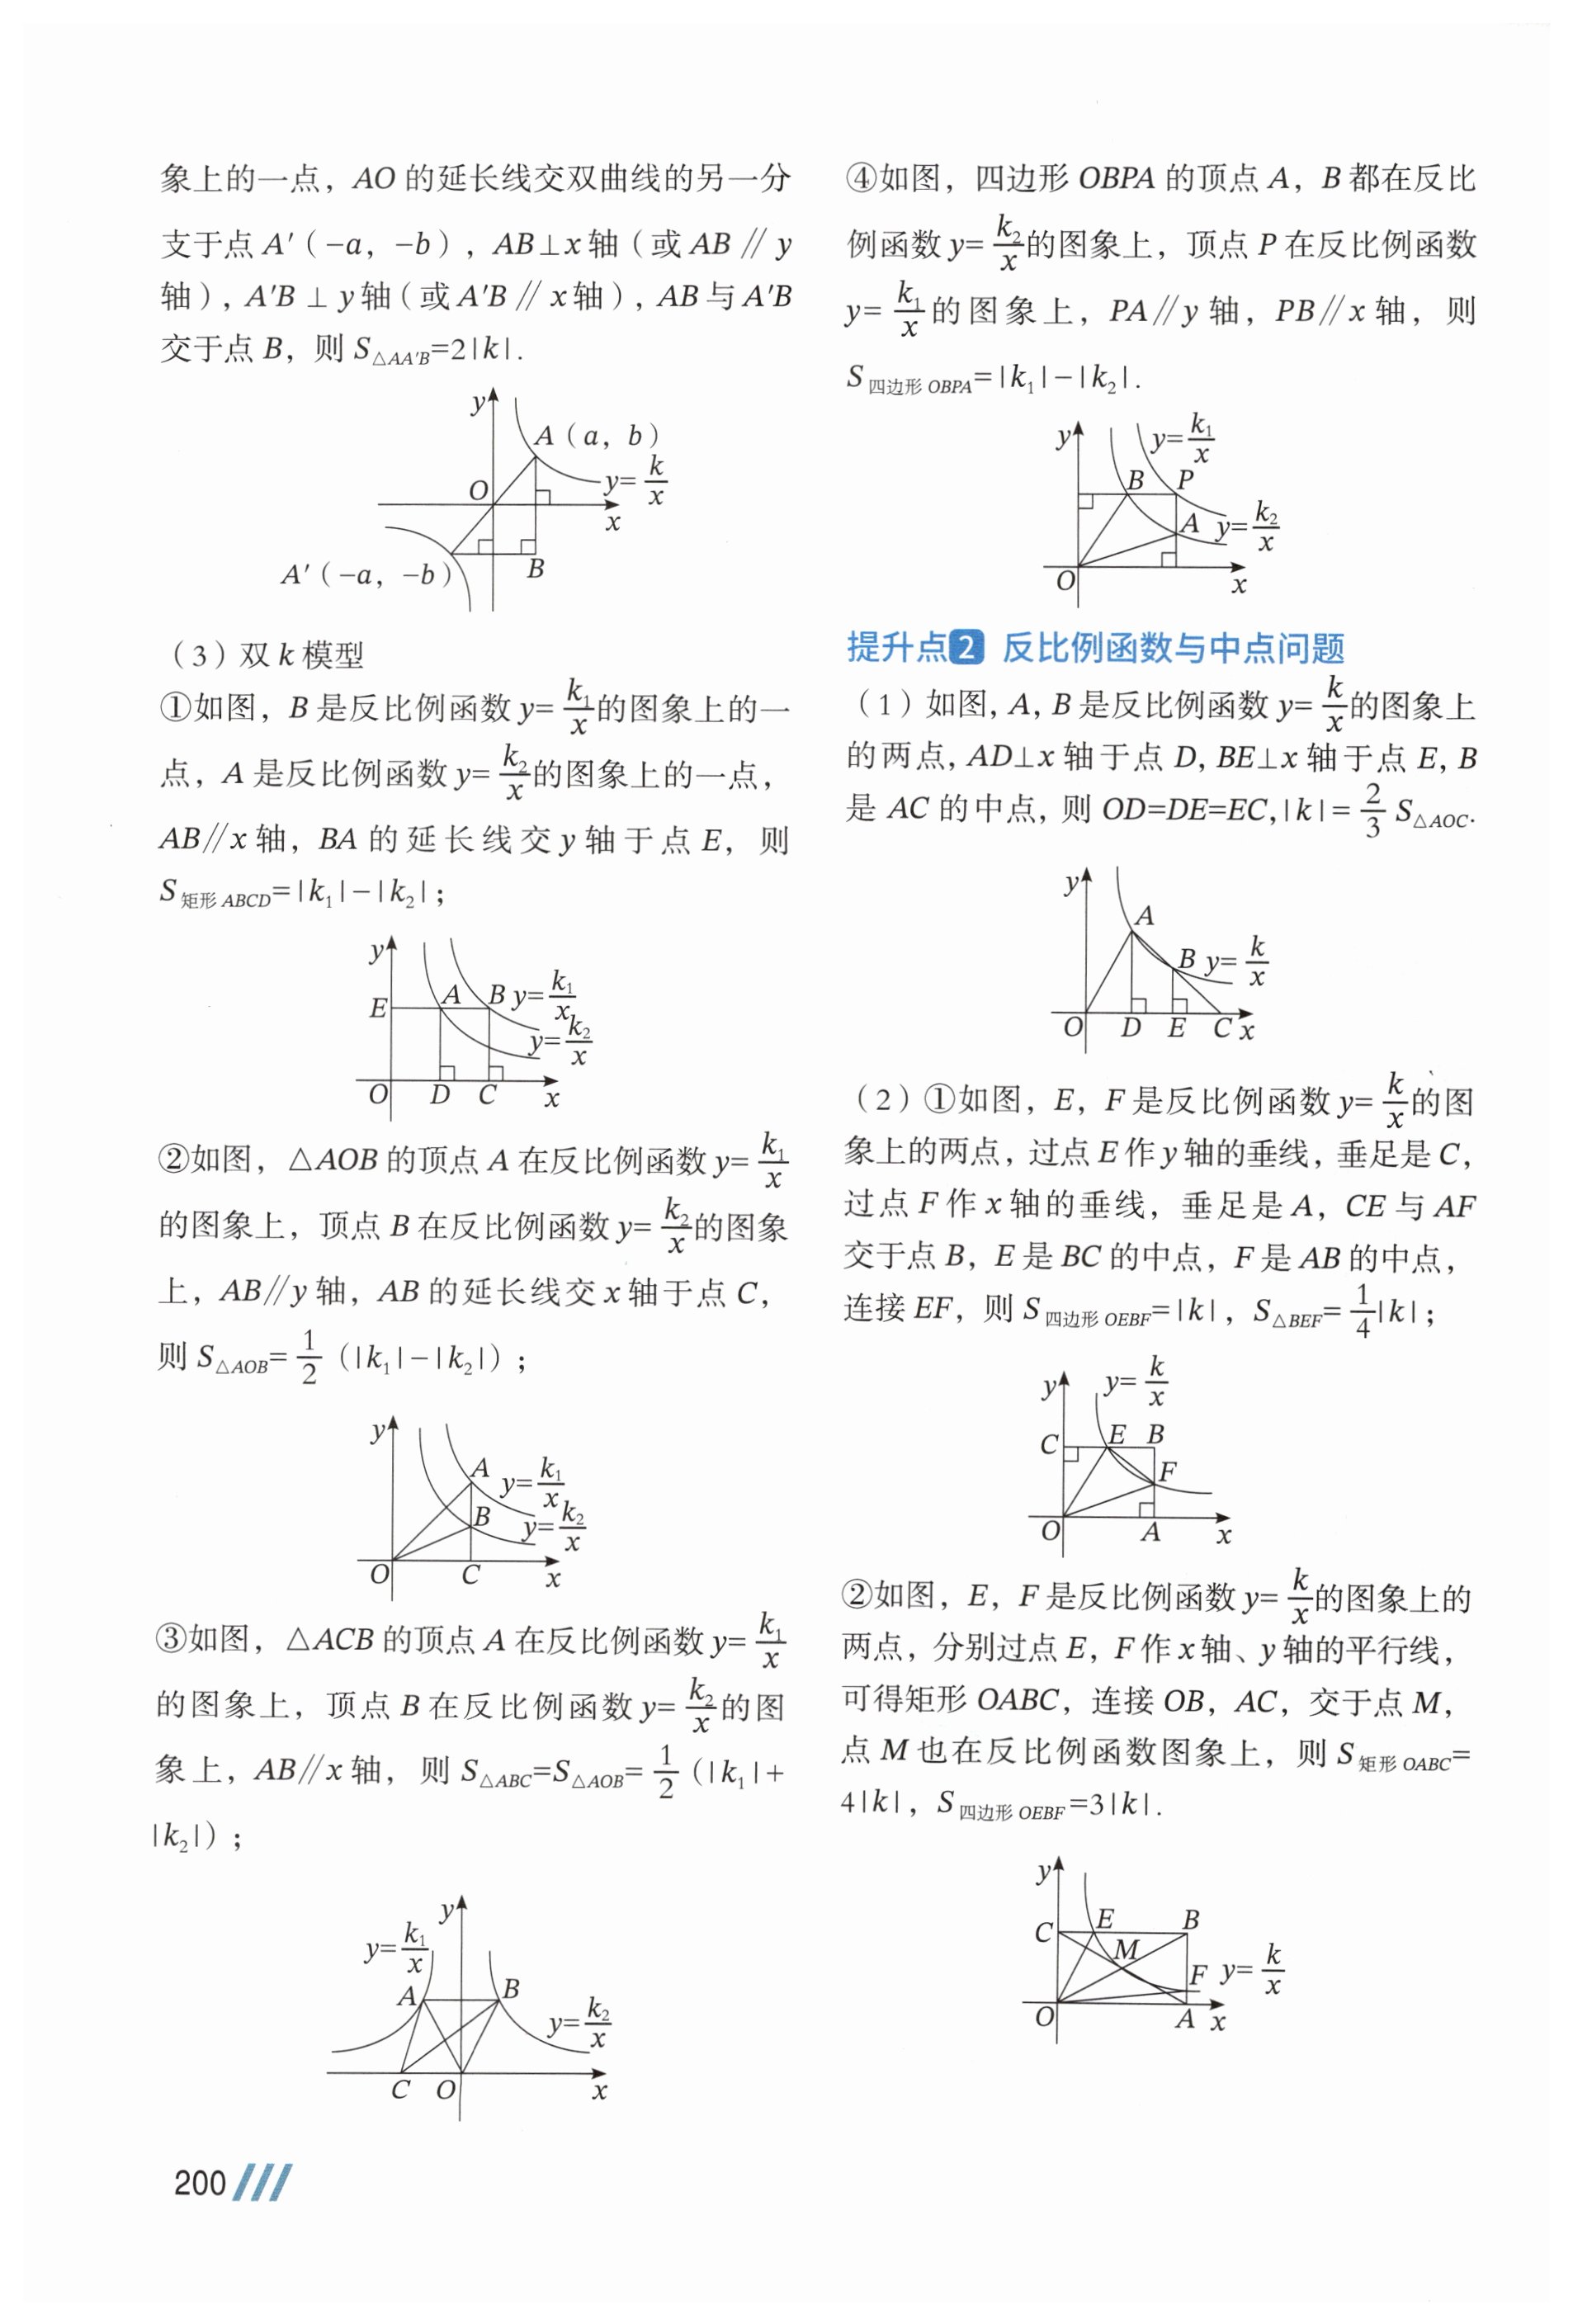 象上的一点，AO 的延长线交双曲线的另一分
支于点 A′（-a，-b），AB⊥x 轴（或 AB∥y
轴），A′B⊥y 轴（或 A′B∥x 轴），AB 与 A′B
交于点 B，则 S△AA′B=2|k|.
y
A（a，b）
y=k/x
O
x
A′（-a，-b）
B
（3）双 k 模型
①如图，B 是反比例函数 y=k₁/x 的图象上的一
点，A 是反比例函数 y=k₂/x 的图象上的一点，
AB∥x 轴，BA 的延长线交 y 轴于点 E，则
S矩形ABCD=|k₁|-|k₂|；
y
E A B y=k₁/x
y=k₂/x
O D C x
②如图，△AOB 的顶点 A 在反比例函数 y=k₁/x
的图象上，顶点 B 在反比例函数 y=k₂/x 的图象
上，AB∥y 轴，AB 的延长线交 x 轴于点 C，
则 S△AOB=1/2（|k₁|-|k₂|）；
y
A y=k₁/x
B y=k₂/x
O C x
③如图，△ACB 的顶点 A 在反比例函数 y=k₁/x
的图象上，顶点 B 在反比例函数 y=k₂/x 的图
象上，AB∥x 轴，则 S△ABC=S△AOB=1/2（|k₁|+
|k₂|）；
y
y=k₁/x
A B
y=k₂/x
C O x
200
④如图，四边形 OBPA 的顶点 A，B 都在反比
例函数 y=k₂/x 的图象上，顶点 P 在反比例函数
y=k₁/x 的图象上，PA∥y 轴，PB∥x 轴，则
S四边形OBPA=|k₁|-|k₂|.
y y=k₁/x
B P
A y=k₂/x
O x
提升点2 反比例函数与中点问题
（1）如图，A，B 是反比例函数 y=k/x 的图象上
的两点，AD⊥x 轴于点 D，BE⊥x 轴于点 E，B
是 AC 的中点，则 OD=DE=EC，|k|=2/3 S△AOC.
y
A
B y=k/x
O D E C x
（2）①如图，E，F 是反比例函数 y=k/x 的图
象上的两点，过点 E 作 y 轴的垂线，垂足是 C，
过点 F 作 x 轴的垂线，垂足是 A，CE 与 AF
交于点 B，E 是 BC 的中点，F 是 AB 的中点，
连接 EF，则 S四边形OEBF=|k|，S△BEF=1/4|k|；
y y=k/x
C E B
F
O A x
②如图，E，F 是反比例函数 y=k/x 的图象上的
两点，分别过点 E，F 作 x 轴、y 轴的平行线，
可得矩形 OABC，连接 OB，AC，交于点 M，
点 M 也在反比例函数图象上，则 S矩形OABC=
4|k|，S四边形OEBF=3|k|.
y
C E B
M
F y=k/x
O A x